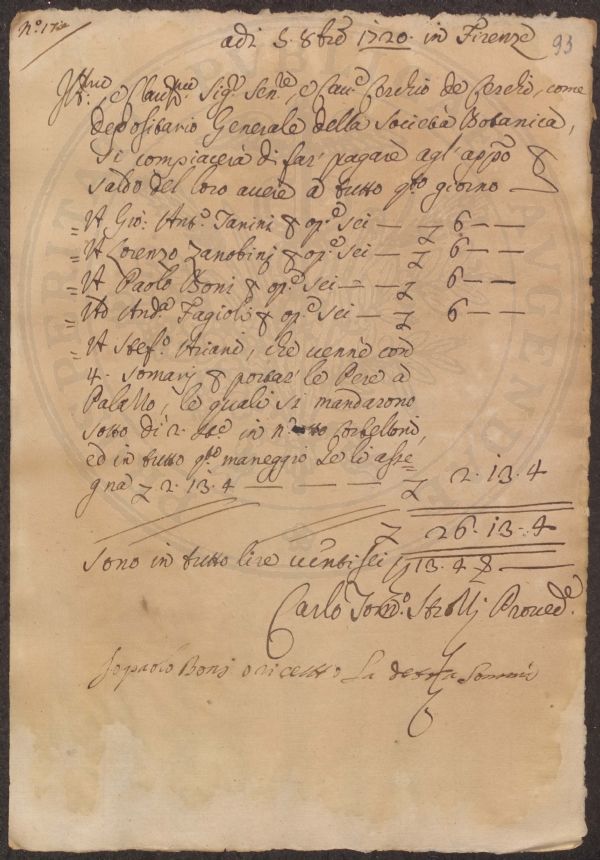 N.º 17
93
adi 5. 8bre 1720. in Firenze
Ill.mo, e Clariss.mo Sig.re Sen.re, e Cav.e Cerchio de Cerchi, come
depositario Generale della Società Botanica,
si compiacerà di far pagare agl'app.o p
saldo del loro avere a tutto q.to giorno —
= A Gio: Ant.o Tanini p op.e sei — £ 6 — —
= A Lorenzo Zanobini p op.e sei — £ 6 — —
= A Paolo Boni p op.e sei — — £ 6 — —
= Ad And.a Fagioli p op.e sei — £ 6 — —
= A Stef.o Ariani, che venne con
4. Somarj p portar le Pere a
Palazzo, le quali si mandarono
sotto di 2. in n.º otto Corbelloni,
ed in tutto q.to maneggio se li asse=
gna £ 2. 13. 4 — — — — £ 2. 13. 4
£ 26. 13. 4
sono in tutto lire ventisei 13. 4 —
Carlo Tom.o Strozzj Proved.e
Io paolo Boni o ricevuto la detta Somma